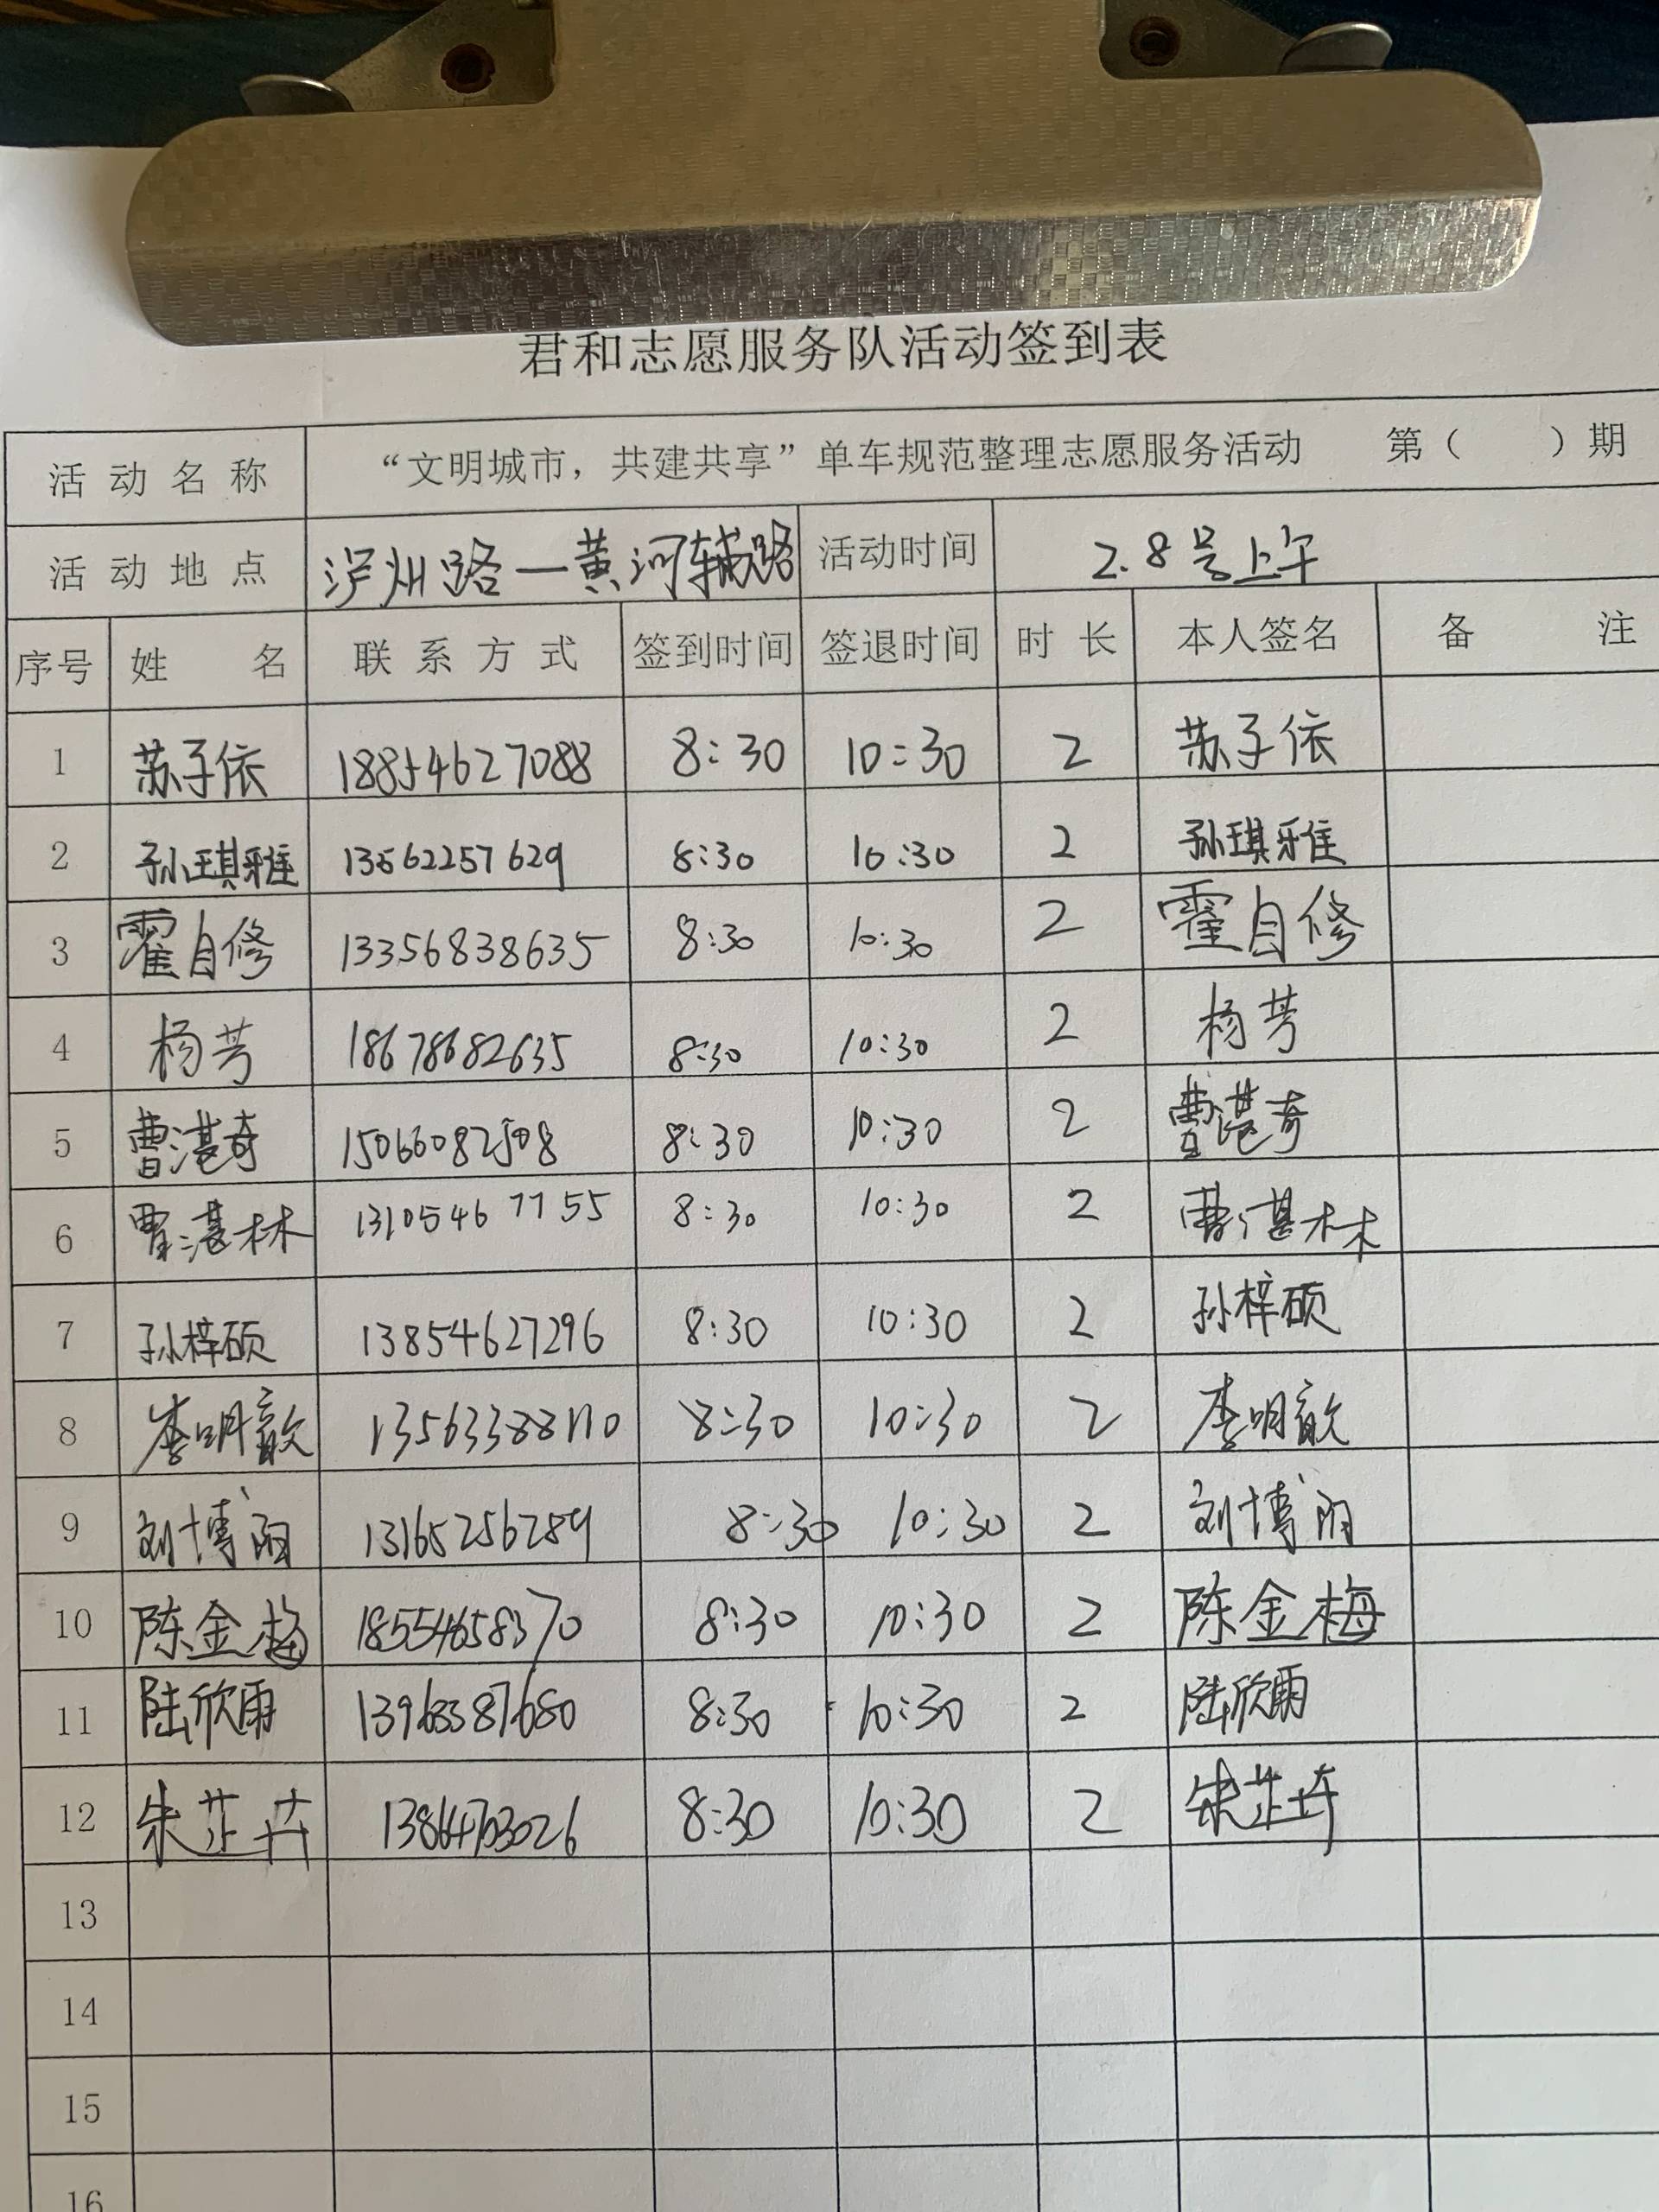 君和志愿服务队活动签到表
活动名称 “文明城市，共建共享”单车规范整理志愿服务活动 第（ ）期
活动地点 泸州路一黄河辅路 活动时间 2.8号上午
序号 姓名 联系方式 签到时间 签退时间 时长 本人签名 备注
1 苏子依 18854627088 8:30 10:30 2 苏子依
2 孙琪雅 13562257629 8:30 10:30 2 孙琪雅
3 霍自修 13356838635 8:30 10:30 2 霍自修
4 杨芳 18678682635 8:30 10:30 2 杨芳
5 曹湛奇 15066082508 8:30 10:30 2 曹湛奇
6 曹湛林 13105467755 8:30 10:30 2 曹湛林
7 孙梓硕 13854627296 8:30 10:30 2 孙梓硕
8 李明歆 13563388110 8:30 10:30 2 李明歆
9 刘博 13165256289 8:30 10:30 2 刘博
10 陈金梅 18554658370 8:30 10:30 2 陈金梅
11 陆欣雨 13963387680 8:30 10:30 2 陆欣雨
12 朱芷卉 13864703026 8:30 10:30 2 朱芷卉
13
14
15
16